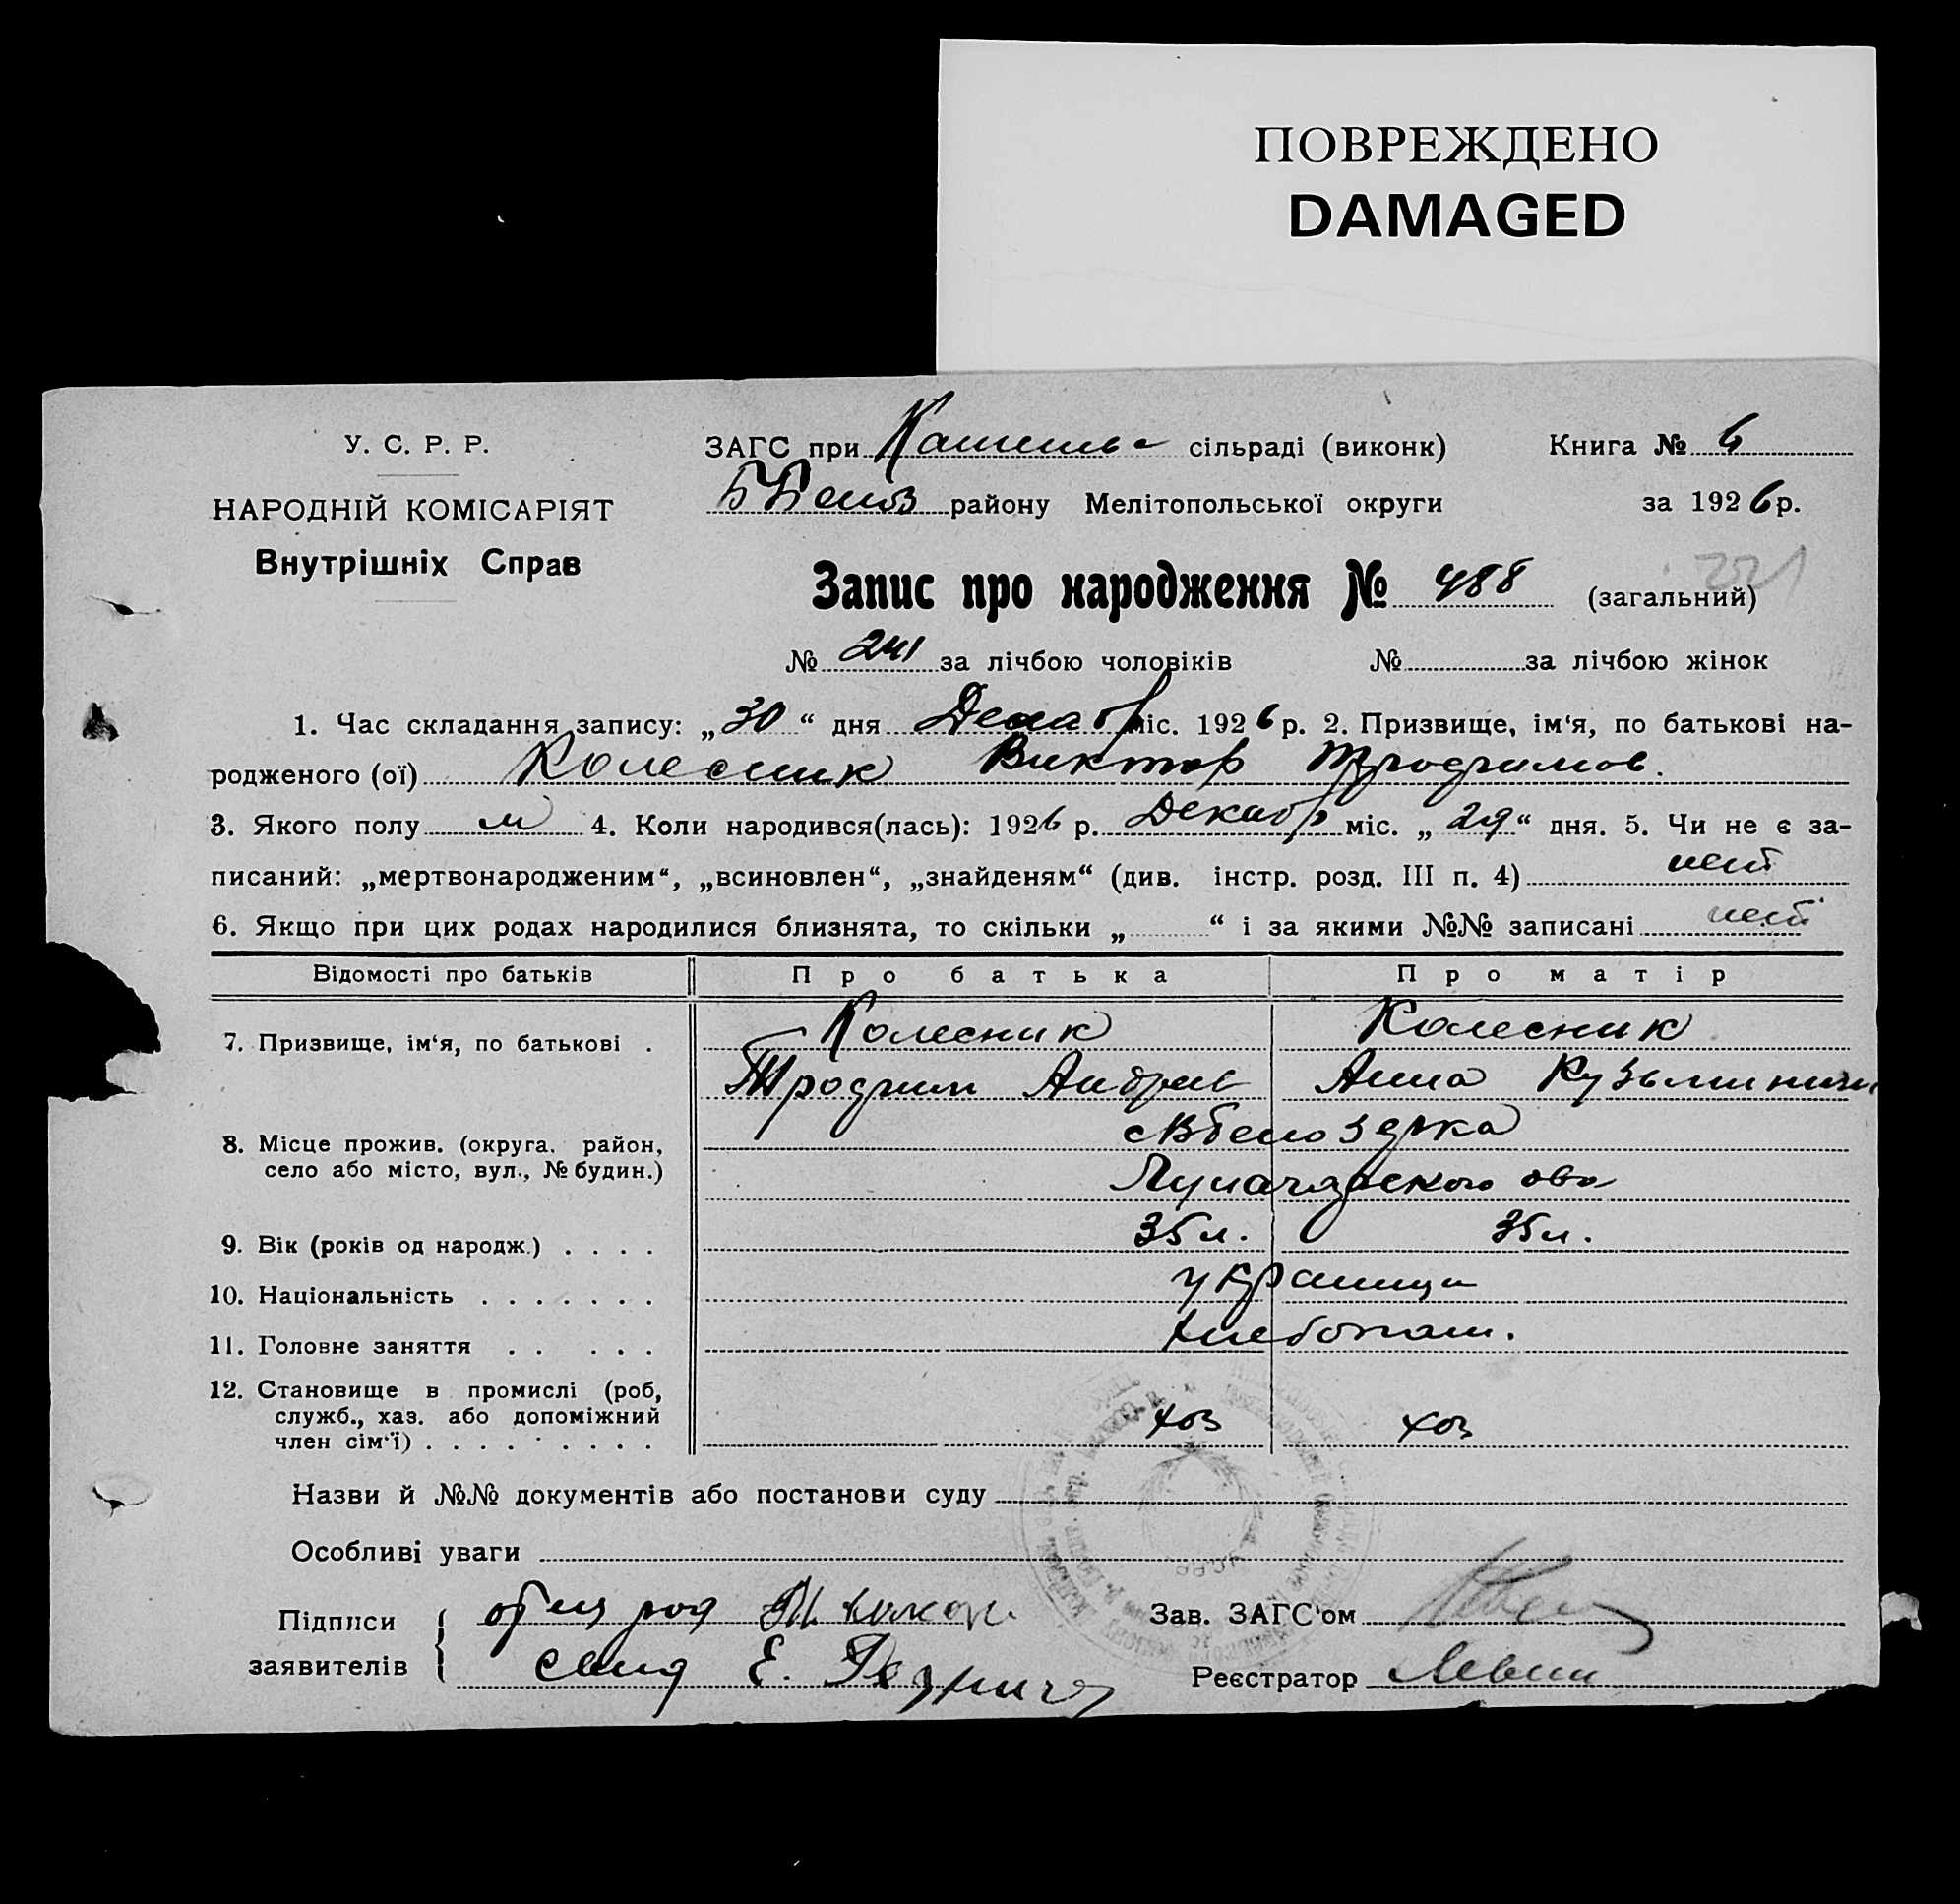 ПОВРЕЖДЕНО
DAMAGED
У. С. Р. Р.
НАРОДНІЙ КОМІСАРІЯТ
Внутрішніх Справ
ЗАГС при сільраді (виконк)
Книга № 6
району Мелітопольської округи
за 1926 р.
Запис про народження № 488 (загальний)
221
№ 241 за лічбою чоловіків № за лічбою жінок
1. Час складання запису: „30“ дня Декабр міс. 1926 р. 2. Призвище, ім‘я, по батькові на-
родженого (ої) Колесник Виктор Трофимов.
3. Якого полу м 4. Коли народився(лась): 1926 р. Декабр міс. „29“ дня. 5. Чи не є за-
писаний: „мертвонародженим“, „всиновлен“, „знайденям“ (див. інстр. розд. III п. 4) нет
6. Якщо при цих родах народилися близнята, то скільки „ “ і за якими №№ записані нет
Відомості про батьків Про батька Про матір
7. Призвище, ім‘я, по батькові . Колесник Колесник
Трофим Андреев Анна Кузьминич
8. Місце прожив. (округа. район,
село або місто, вул., № будин.)
Белозерка
9. Вік (років од народж.) . . . . 35 л. 35 л.
10. Національність . . . . . . . украинцы
11. Головне заняття . . . . . хлебопаш.
12. Становище в промислі (роб,
служб., хаз. або допоміжний
член сім‘ї) . . . . . . . . . хоз хоз
Назви й №№ документів або постанови суду
Особливі уваги
Підписи
заявителів
Зав. ЗАГС‘ом
Реєстратор Левин